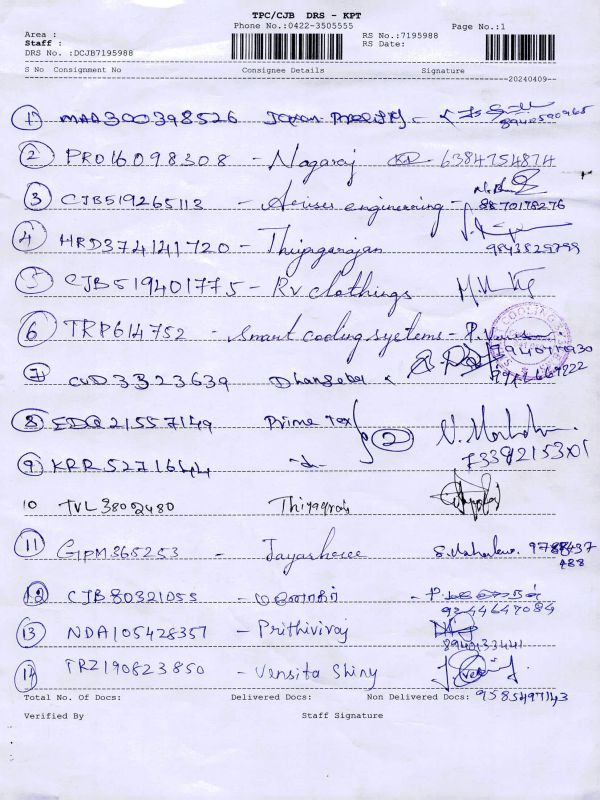 TPC/CJB DRS - KPT
Phone No.:0422-3505555 Page No.:1
Area :
Staff : RS No.:7195988
DRS No. :DCJB7195988 RS Date:
S No Consignment No Consignee Details Signature
20240409
1 MAA300398526
8940590965
2 PRO16098308 - Nagaraj 6384754874
3 CJB519265113 - engineering - 8870178276
4 HRD374141720 - Thiyagarajan 9843829799
5 CJB519401775 - RV clothings
6 TRP614752 - Smart cooling systems -
7 CUD3323639 Dhanseba
8 EDQ21557149 Prime Tex 2
9 KRR5271644 - do - 7339215301
10 TVL3802480 Thiyagraj
11 GPM365253 - Jayashree
12 CJB80321055 - மனோகர் - 9244647084
13 NDA105428357 - Prithiviraj 8940133441
14 TRZ190823850 - Vensita Shiny
Total No. Of Docs: Delivered Docs: Non Delivered Docs: 9585497143
Verified By Staff Signature